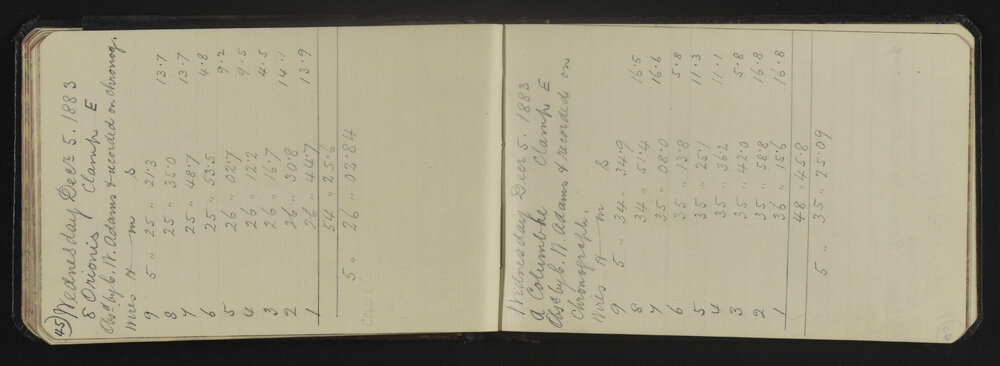 (45) Wednesday Decr 5. 1883
δ Orionis Clamp E
Obsd by C. W. Adams & recorded on Chronog.
Wires H m S
9 5 " 25 " 21.3
8 25 " 35.0 13.7
7 25 " 48.7 13.7
6 25 " 53.5 4.8
5 26 " 02.7 9.2
4 26 " 12.2 9.5
3 26 " 16.7 4.5
2 26 " 30.8 14.1
1 26 " 44.7 13.9
54 " 25.6
5 " 26 " 02.84
Wednesday Decr 5. 1883
α Columbae Clamp E
Obsd by C. W. Adams & recorded on
Chronograph.
Wires H m S
9 5 " 34 " 34.9
8 34 " 51.4 16.5
7 35 " 08.0 16.6
6 35 " 13.8 5.8
5 35 " 25.1 11.3
4 35 " 36.2 11.1
3 35 " 42.0 5.8
2 35 " 58.8 16.8
1 36 " 15.6 16.8
48 " 45.8
5 " 35 " 25.09